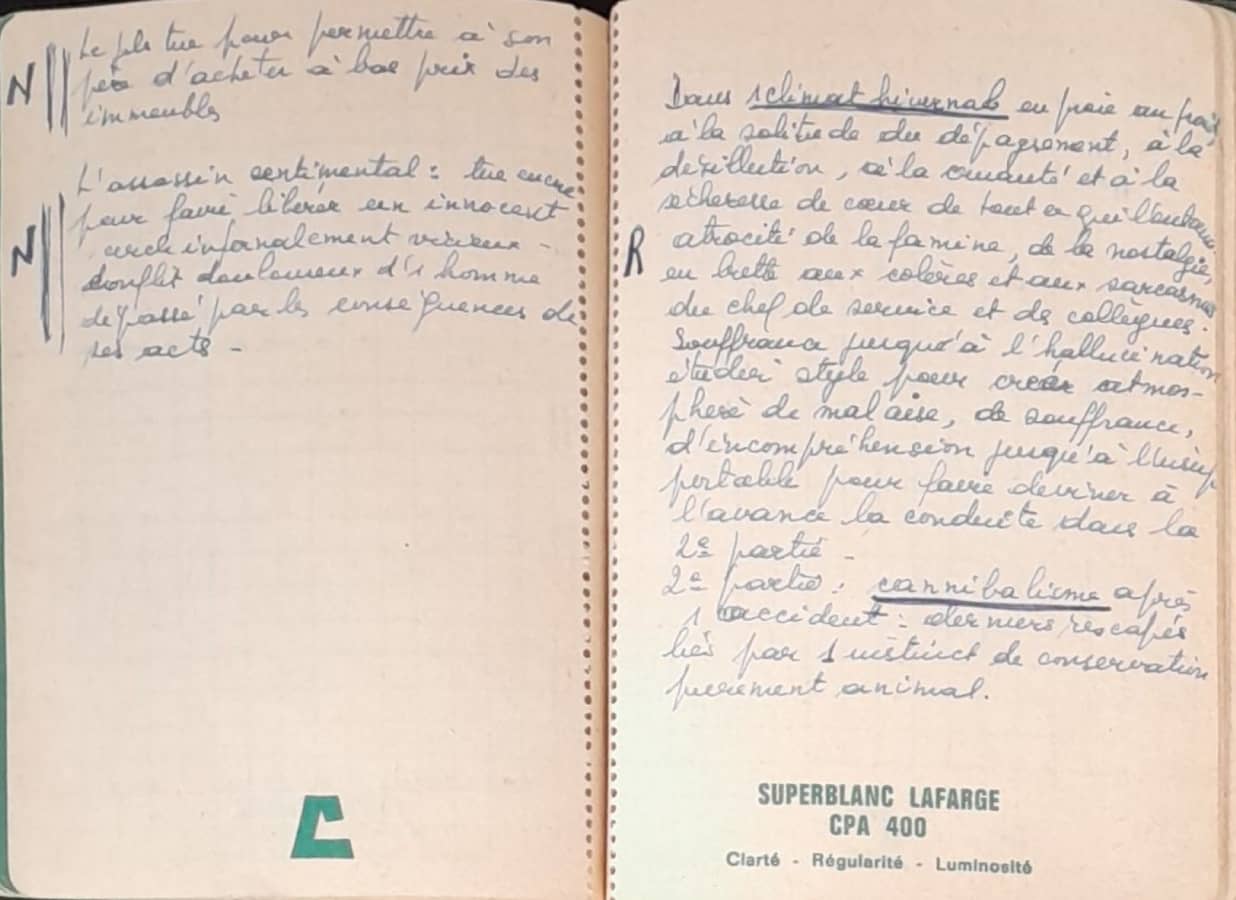 N
Le fils tue pour permettre à son
père d'acheter à bas prix des
immeubles
N
L'assassin sentimental : tue encore
pour faire libérer un innocent
infernalement vicieux -
Conflit douloureux d'1 homme
dépassé par les conséquences de
ses actes -
R
Dans 1 climat hivernal en proie au froid
à la solitude du dépaysement, à la
désillution, à la cruauté et à la
sécheresse de cœur de tout ce qui l'entoure
atrocité de la famine, de la nostalgie,
en butte aux colères et aux sarcasmes
du chef de service et des collègues.
Souffrance jusqu'à l'hallucination
étudier style pour créer atmos-
phère de malaise, de souffrance,
d'incompréhension jusqu'à l'insup
portable pour faire deviner à
l'avance la conduite dans la
2e partie -
2e partie : cannibalisme après
1 accident : derniers rescapés
liés par 1 instinct de conservation
purement animal.
C
SUPERBLANC LAFARGE
CPA 400
Clarté - Régularité - Luminosité